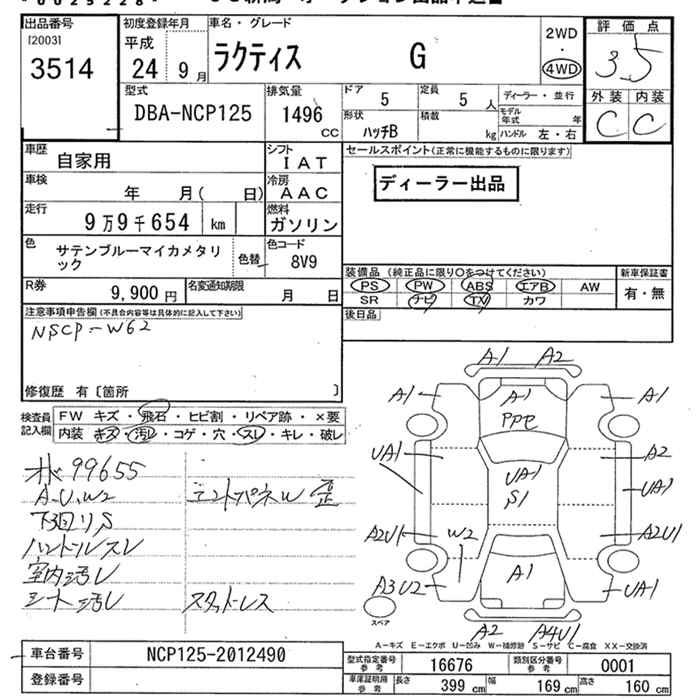 出品番号
[2003]
3514
初度登録年月
平成
24 9 月
車名・グレード
ラクティス G
2WD
・
4WD
評価点
3.5
外装 内装
C C
型式
DBA-NCP125
排気量
1496
CC
ドア 5
定員 5 人
ディーラー・並行
形状
ハッチB
積載
kg
モデル年式 年
ハンドル 左・右
車歴
自家用
シフト
IAT
車検
年 月( 日)
冷房
AAC
走行
9万9千654 km
燃料
ガソリン
色
サテンブルーマイカメタリ
ック
色替
色コード
8V9
R券
9,900 円
名変通知期限
月 日
セールスポイント(正常に機能するものに限ります)
ディーラー出品
装備品 (純正品に限り○をつけてください)
PS PW ABS エアB AW
SR ナビ TV カワ
新車保証書
有・無
後日品
注意事項申告欄(不具合内容等は具体的に記入して下さい)
NSCP-W62
修復歴 有〔箇所 〕
検査員
記入欄
FW キズ・飛石・ヒビ割・リペア跡・×要
内装 キズ・汚レ・コゲ・穴・スレ・キレ・破レ
99655
A.U.W2
フロントパネル歪
下回りS
ハンドルスレ
室内汚レ
シート汚レ
スタッドレス
A1 A2
A1 A1 A1
PPC
UA1 A2
UA1
S1
UA1
A2U1 W2 A2U1
A1
A3U2 UA1
スペア
A2 A4U1
A-キズ E-エクボ U-凹み W-補修跡 S-サビ C-腐食 XX-交換済
車台番号
NCP125-2012490
登録番号
型式指定番号
参考
16676
類別区分番号
参考
0001
車庫証明用
参考
長さ 399 cm
幅 169 cm
高さ 160 cm